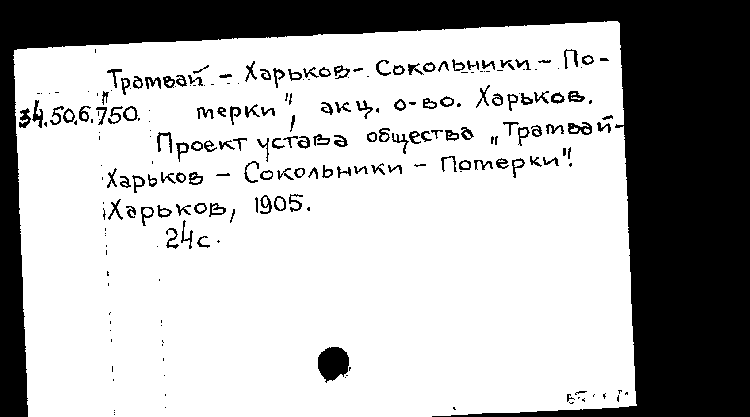 „Трамвай – Харьков – Сокольники – По-
34.50.6.750. терки", акц. о-во. Харьков.
Проект устава общества „Трамвай-
Харьков – Сокольники – Потерки".
Харьков, 1905.
24 с.